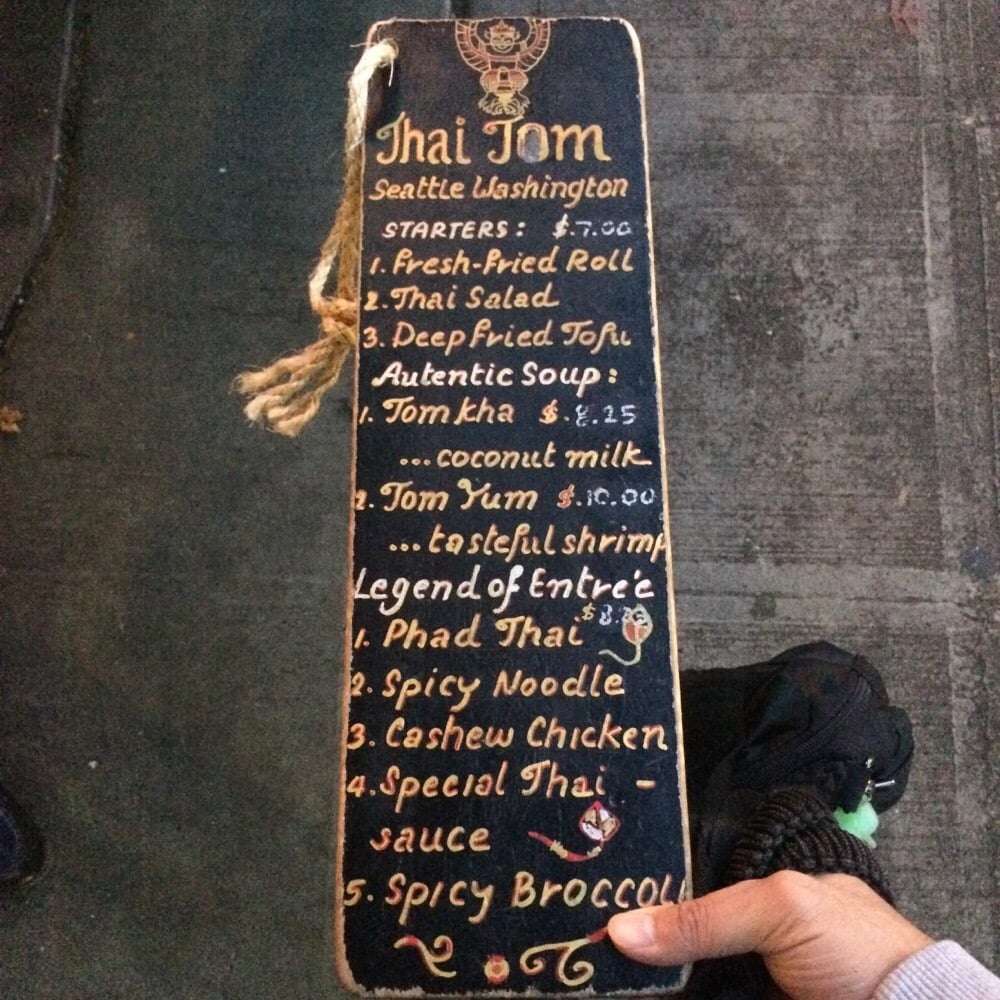 Thai Tom
Seattle Washington
STARTERS: $.7.00
1. Fresh-Fried Roll
2. Thai Salad
3. Deep Fried Tofu
Autentic Soup:
1. Tom kha $.8.25
...coconut milk
2. Tom Yum $.10.00
...tasteful shrimp
Legend of Entre'e
1. Phad Thai
2. Spicy Noodle
3. Cashew Chicken
4. Special Thai -
sauce
5. Spicy BROCCOLI